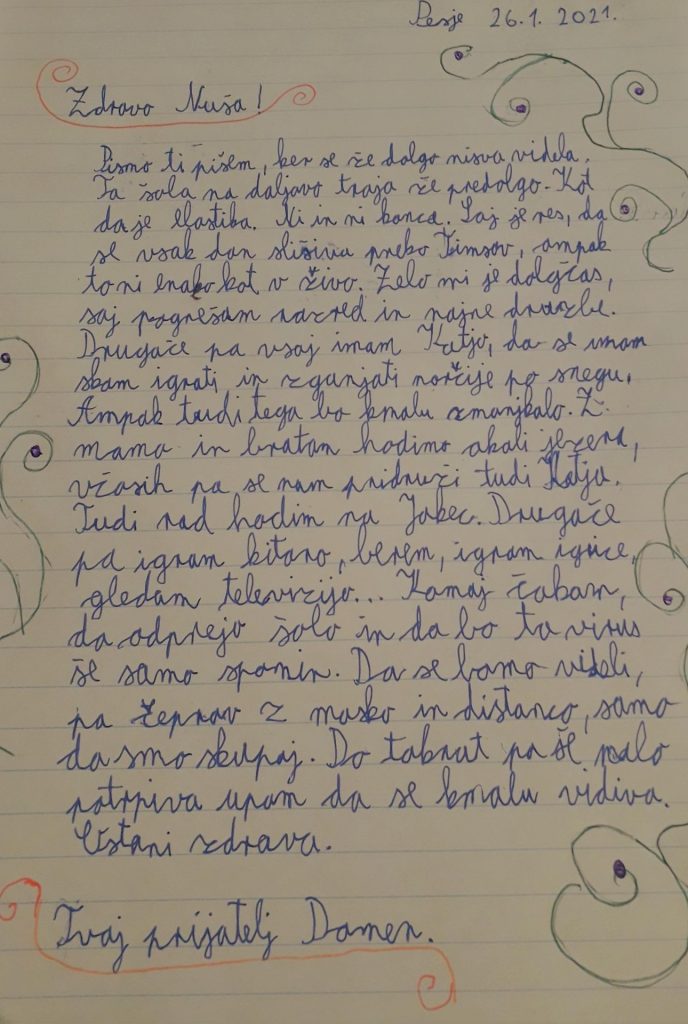 Pesje 26.1. 2021.
Zdravo Nuša!
Pismo ti pišem, ker se že dolgo nisva videla.
Ta šola na daljavo traja že predolgo. Kot
da je elastika. Ni in ni konca. Saj je res, da
se vsak dan slišiva preko Timsov, ampak
to ni enako kot v živo. Zelo mi je dolgčas,
saj pogrešam razred in najne družbe.
Drugače pa vsaj imam Katjo, da se imam
skam igrati in zganjati norčije po snegu.
Ampak tudi tega bo kmalu zmanjkalo. Z
mamo in bratom hodimo okoli jezera,
včasih pa se nam pridruži tudi Katja.
Tudi rad hodim na Jakec. Drugače
pa igram kitaro, berem, igram igrice,
gledam televizijo... Komaj čakam,
da odprejo šolo in da bo ta virus
še samo spomin. Da se bomo videli,
pa čeprav z masko in distanco, samo
da smo skupaj. Do takrat pa še malo
potrpiva upam da se kmalu vidiva.
Ostani zdrava.
Tvoj prijatelj Domen.